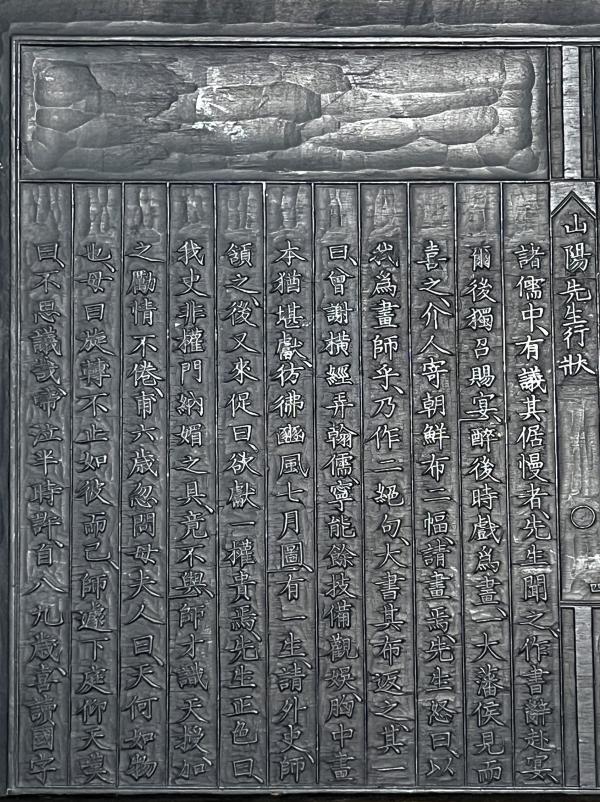 山陽先生行狀 ○ 四
諸儒中、有議其倨慢者、先生聞之、作書辭赴宴、
爾後獨召賜宴、醉後時戲爲畫、一大藩侯見而
喜之、介人寄朝鮮布二幅、請畫焉、先生怒曰、以
我爲畫師乎、乃作二絕句、大書其布返之、其一
曰、曾謝橫經弄翰儒、寧能餘技備觀娛、胸中畫
本猶堪獻、彷彿豳風七月圖、有一生、請外史、師
頷之、後又來促曰、欲獻一權貴焉、先生正色曰、
我史非權門納媚之具、竟不與、師才識天授、加
之勵情不倦、甫六歲、忽問母夫人曰、天何如物
也、母曰旋轉不止如彼而已、師遽下庭仰天嘆
曰、不思議哉、啼泣半時許、自八九歲、喜讀國字